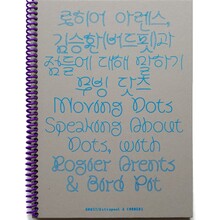 로히어 아렌스,
김승환(버드핏)과
점들에 대해 말하기
무빙 닷츠
Moving Dots
Speaking About
Dots, with
Rogier Arents
& Bird Pit